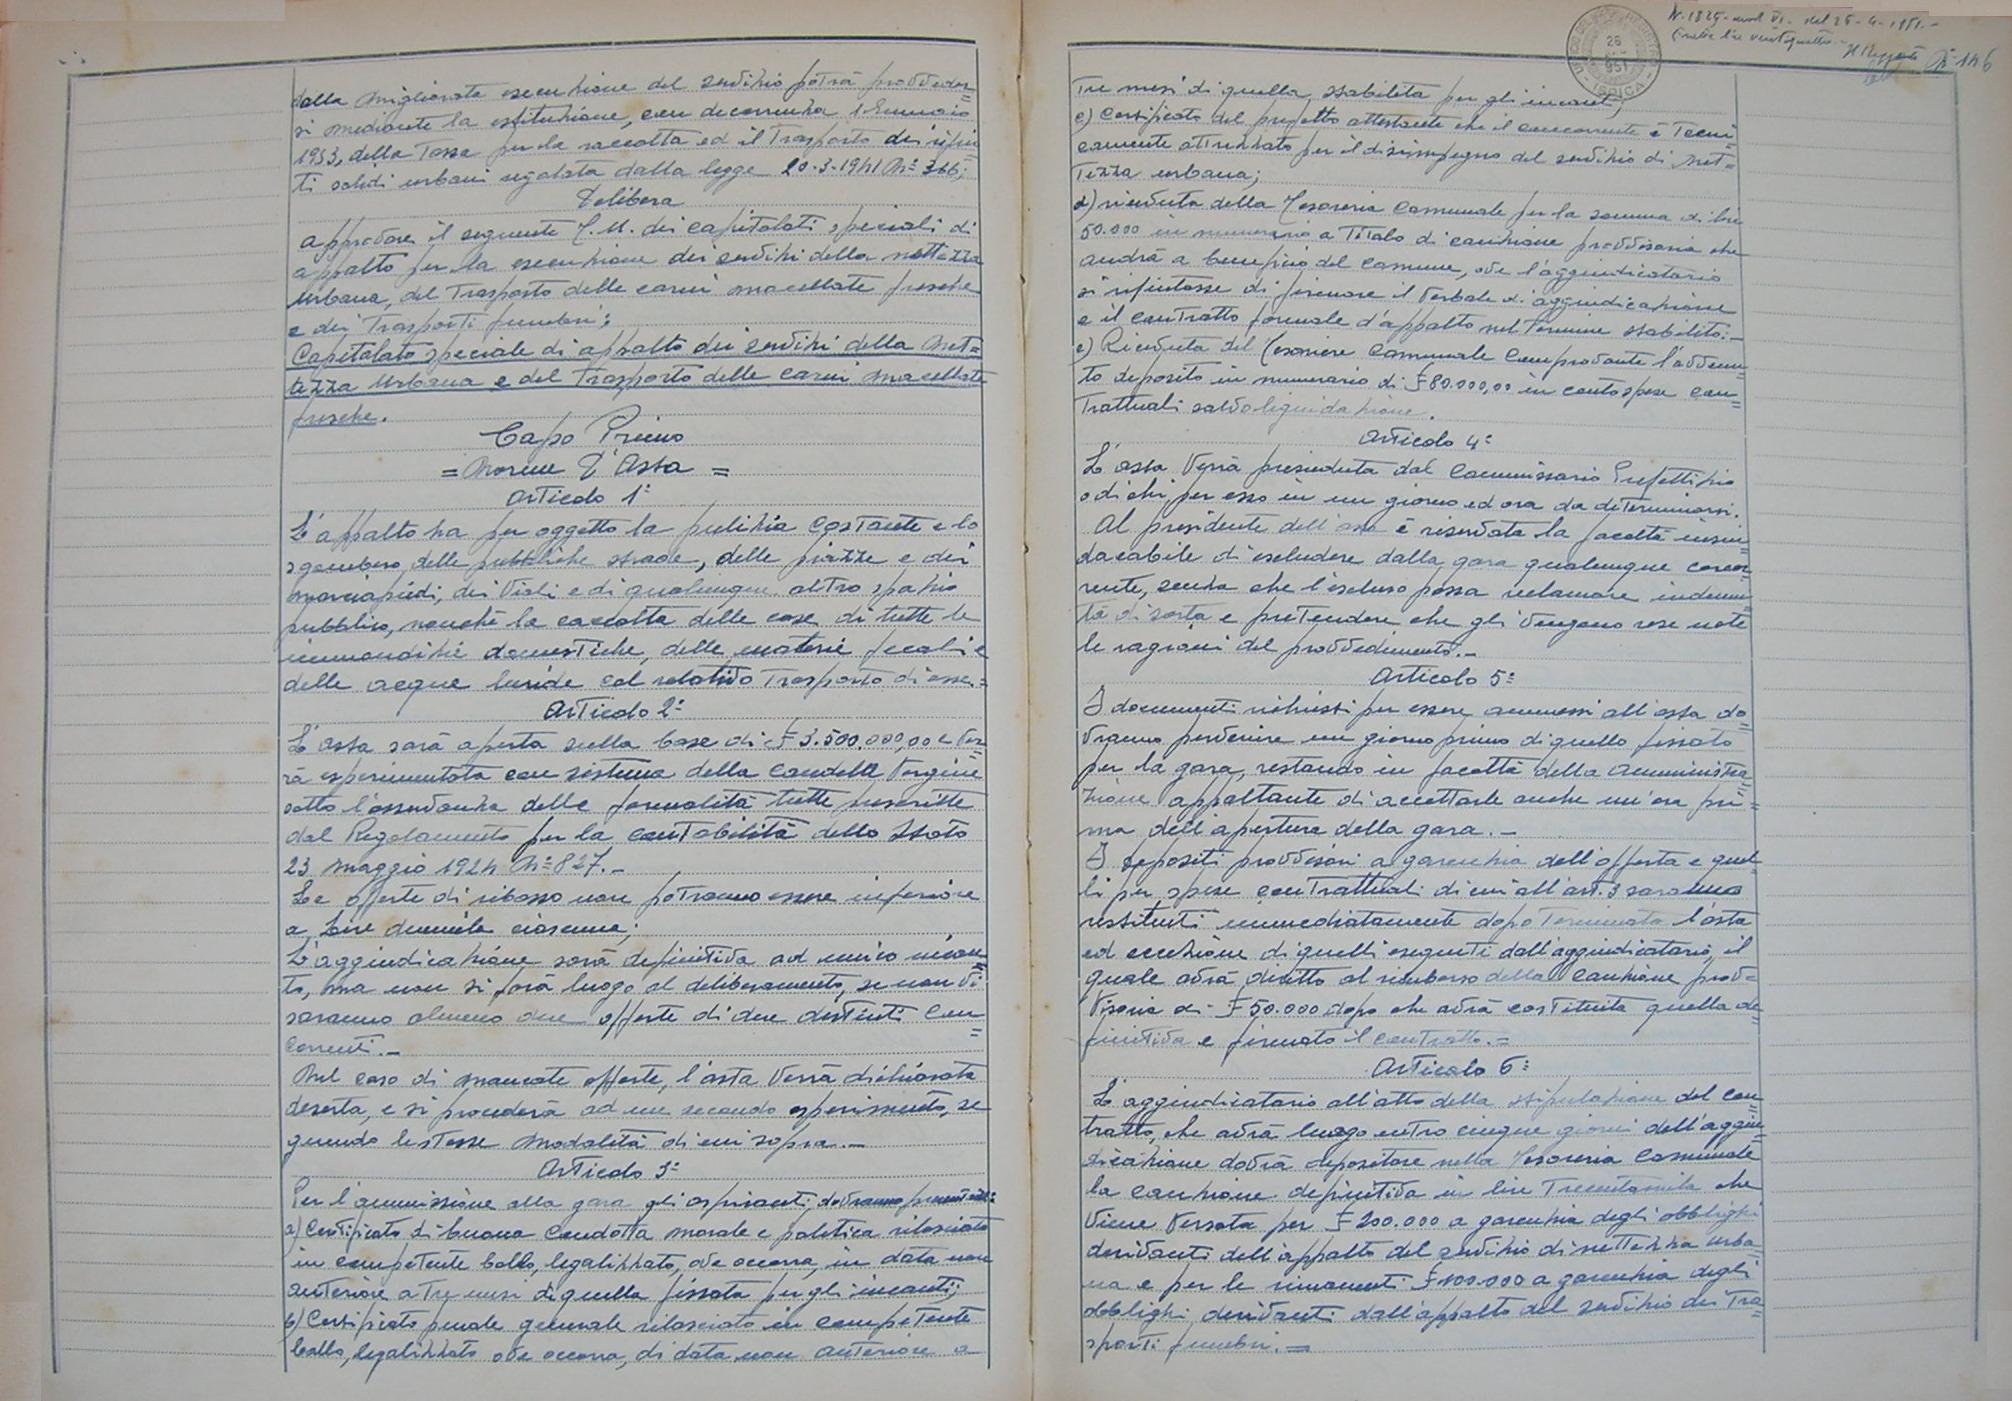 dalla migliorata esecuzione del servizio potrà provveder=
si mediante la istituzione, con decorrenza 1 Gennaio
1953, della Tassa per la raccolta ed il Trasporto dei rifiu
ti solidi urbani regolata dalla legge 20-3-1941 N° 366;
Delibera
approvare il seguente T.U. dei capitolati speciali di
appalto per la esecuzione dei servizi della nettezza
urbana, del Trasporto delle carni macellate fresche
e dei Trasporti funebri:
Capitolato speciale di appalto dei servizi della Net=
tezza Urbana e del Trasporto delle carni macellate
fresche.
Capo Primo
= Norme d'Asta =
Articolo 1°
L'appalto ha per oggetto la pulizia costante e lo
sgombero, delle pubbliche strade, delle piazze e dei
marciapiedi, dei Viali e di qualunque altro spazio
pubblico, nonché la raccolta delle case di tutte le
immondizie domestiche, delle materie fecali e
delle acque luride col relativo Trasporto di esse.=
Articolo 2°
L'asta sarà aperta sulla base di £ 3.500.000,00 e Ver=
rà esperimentata con sistema della Candela Vergine
sotto l'osservanza delle formalità tutte prescritte
dal Regolamento per la contabilità dello Stato
23 maggio 1924 N° 827.-
Le offerte di ribasso non potranno essere inferiore
a Lire duemila ciascuna;
L'aggiudicazione sarà definitiva ad unico incan=
to, ma non si farà luogo al deliberamento, se non Vi
saranno almeno due offerte di due distinti Con=
correnti.-
Nel caso di mancate offerte, l'asta Verrà dichiarata
deserta, e si procederà ad un secondo esperimento, se
guendo le stesse modalità di cui sopra.-
Articolo 3°
Per l'ammissione alla gara gli aspiranti dovranno presentare:
a) Certificato di buona Condotta morale e politica rilasciato
in competente bollo, legalizzato, ove occorra, in data non
anteriore a tre mesi di quella fissata per gli incanti;
b) Certificato penale generale rilasciato in competente
bollo, legalizzato ove occorra, di data non anteriore a
N. 1825 - mod VI - del 26-4-1951.-
Esatte lire ventiquattro.-
26
951
ISPICA
146
Tre mesi di quella stabilita per gli incanti;
c) Certificato del prefetto attestante che il concorrente è Tecni
camente attrezzato per il disimpegno del servizio di Net=
Tezza urbana;
d) ricevuta della Tesoreria Comunale per la somma di lire
50.000 in numerario a Titolo di cauzione provvisoria che
andrà a beneficio del Comune, ove l'aggiudicatario
si rifiutasse di firmare il Verbale di aggiudicazione
e il contratto formale d'appalto nel Termine stabilito.-
e) Ricevuta del Tesoriere Comunale Comprovante l'avvenu=
to deposito in numerario di £ 80.000,00 in conto spese con=
Trattuali salvo liquidazione.
Articolo 4°
L'asta Verrà presieduta dal Commissario Prefettizio
o di chi per esso in un giorno ed ora da determinarsi.
Al presidente dell'asta è riservata la facoltà insin=
dacabile di escludere dalla gara qualunque concor=
rente, senza che l'escluso possa reclamare indenni=
tà di sorta e pretendere che gli Vengano rese note
le ragioni del provvedimento.-
Articolo 5°
I documenti richiesti per essere ammessi all'asta do=
Vranno pervenire un giorno prima di quello fissato
per la gara, restando in facoltà della Amministra=
zione appaltante di accettarle anche un'ora pri=
ma dell'apertura della gara.-
I depositi provvisori a garenzia dell'offerta e quel=
li per spese contrattuali di cui all'art. 3 saranno
restituiti immediatamente dopo Terminata l'asta
ed eccezione di quelli eseguiti dall'aggiudicatario, il
quale avrà diritto al rimborso della Cauzione prov=
Visoria di £ 50.000 dopo che avrà costituita quella de=
finitiva e firmato il contratto.=
Articolo 6°
L'aggiudicatario all'atto della stipulazione del con=
tratto, che avrà luogo entro cinque giorni dell'aggiu=
dicazione dovrà depositare nella Tesoreria Comunale
la cauzione definitiva in lire Trecentomila che
Viene Versata per £ 200.000 a garenzia degli obblighi
derivanti dell'appalto del servizio di nettezza urba=
na e per le rimanenti £ 100.000 a garenzia degli
obblighi derivanti dall'appalto del servizio dei Tra=
sporti funebri.=